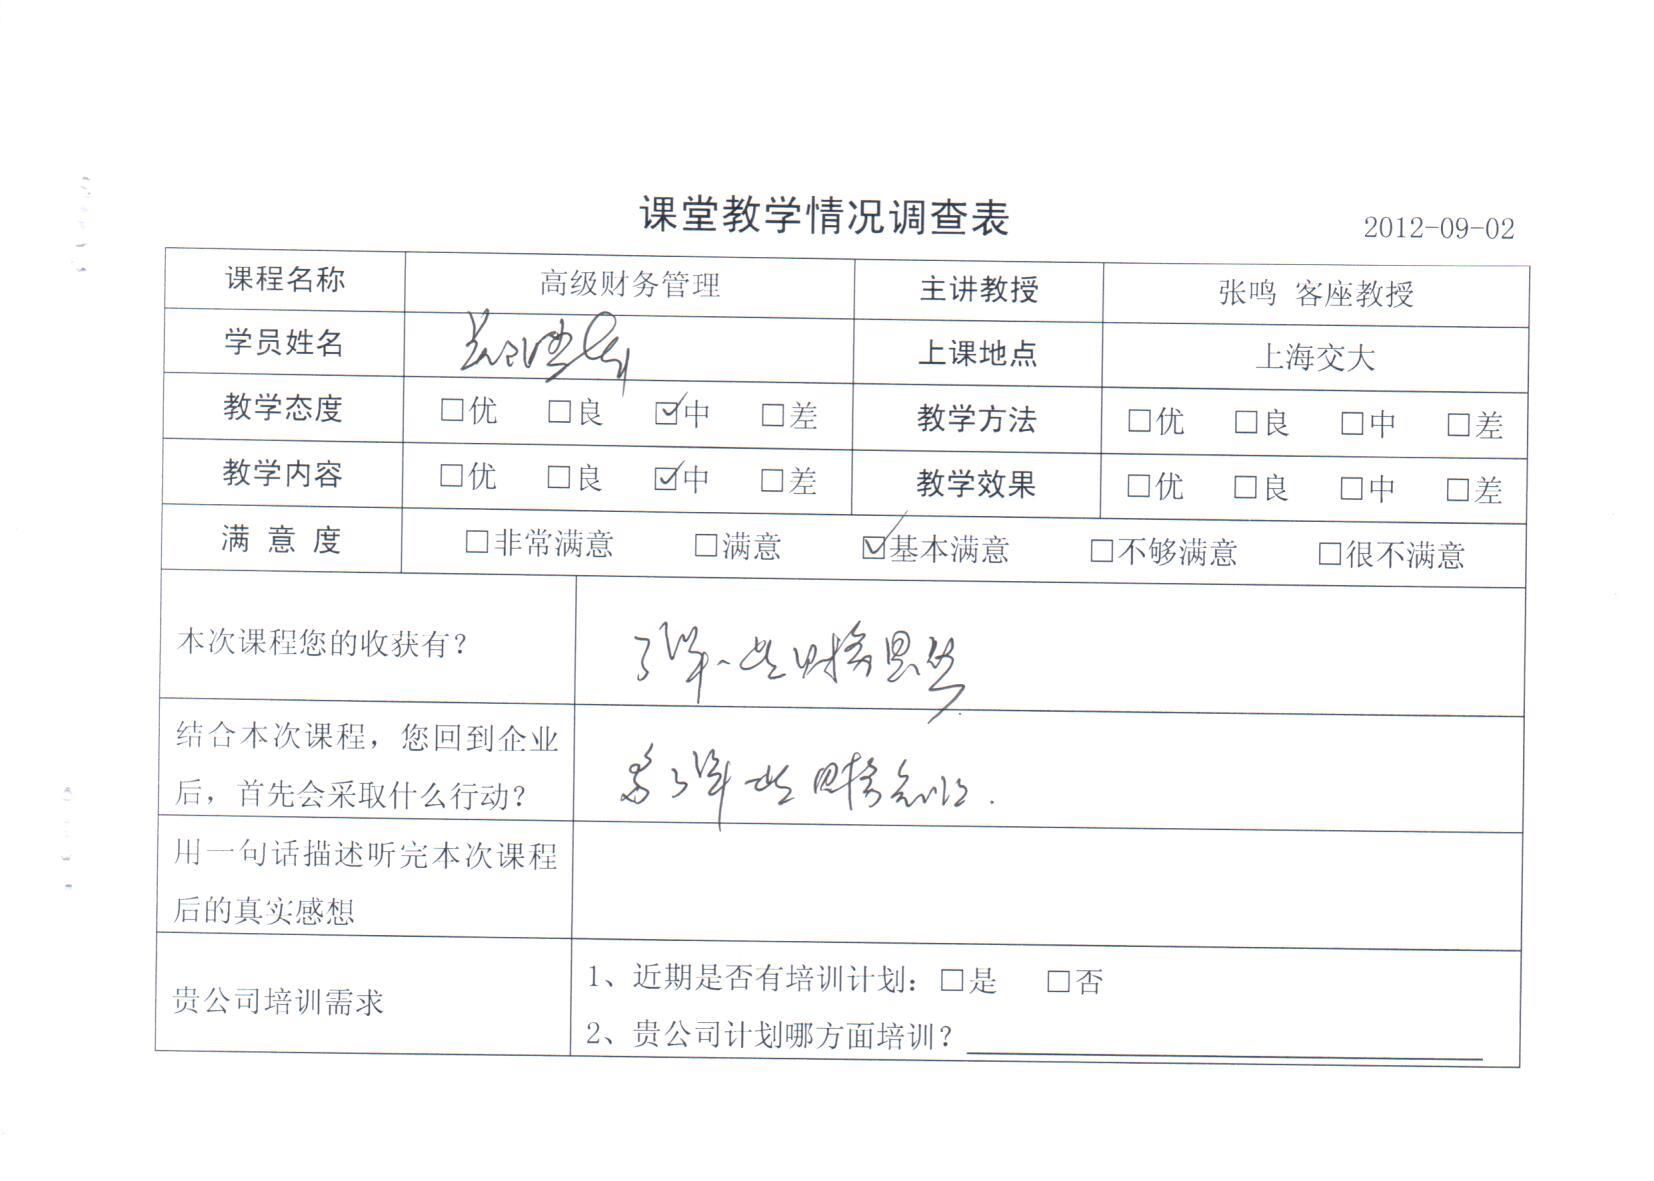 课堂教学情况调查表
2012-09-02
课程名称 高级财务管理 主讲教授 张鸣 客座教授
学员姓名 上课地点 上海交大
教学态度 □优 □良 ☑中 □差 教学方法 □优 □良 □中 □差
教学内容 □优 □良 ☑中 □差 教学效果 □优 □良 □中 □差
满意度 □非常满意 □满意 ☑基本满意 □不够满意 □很不满意
本次课程您的收获有? 了解一些财务思路
结合本次课程，您回到企业
后，首先会采取什么行动? 了解一些财务知识.
用一句话描述听完本次课程
后的真实感想
贵公司培训需求
1、近期是否有培训计划: □是 □否
2、贵公司计划哪方面培训?